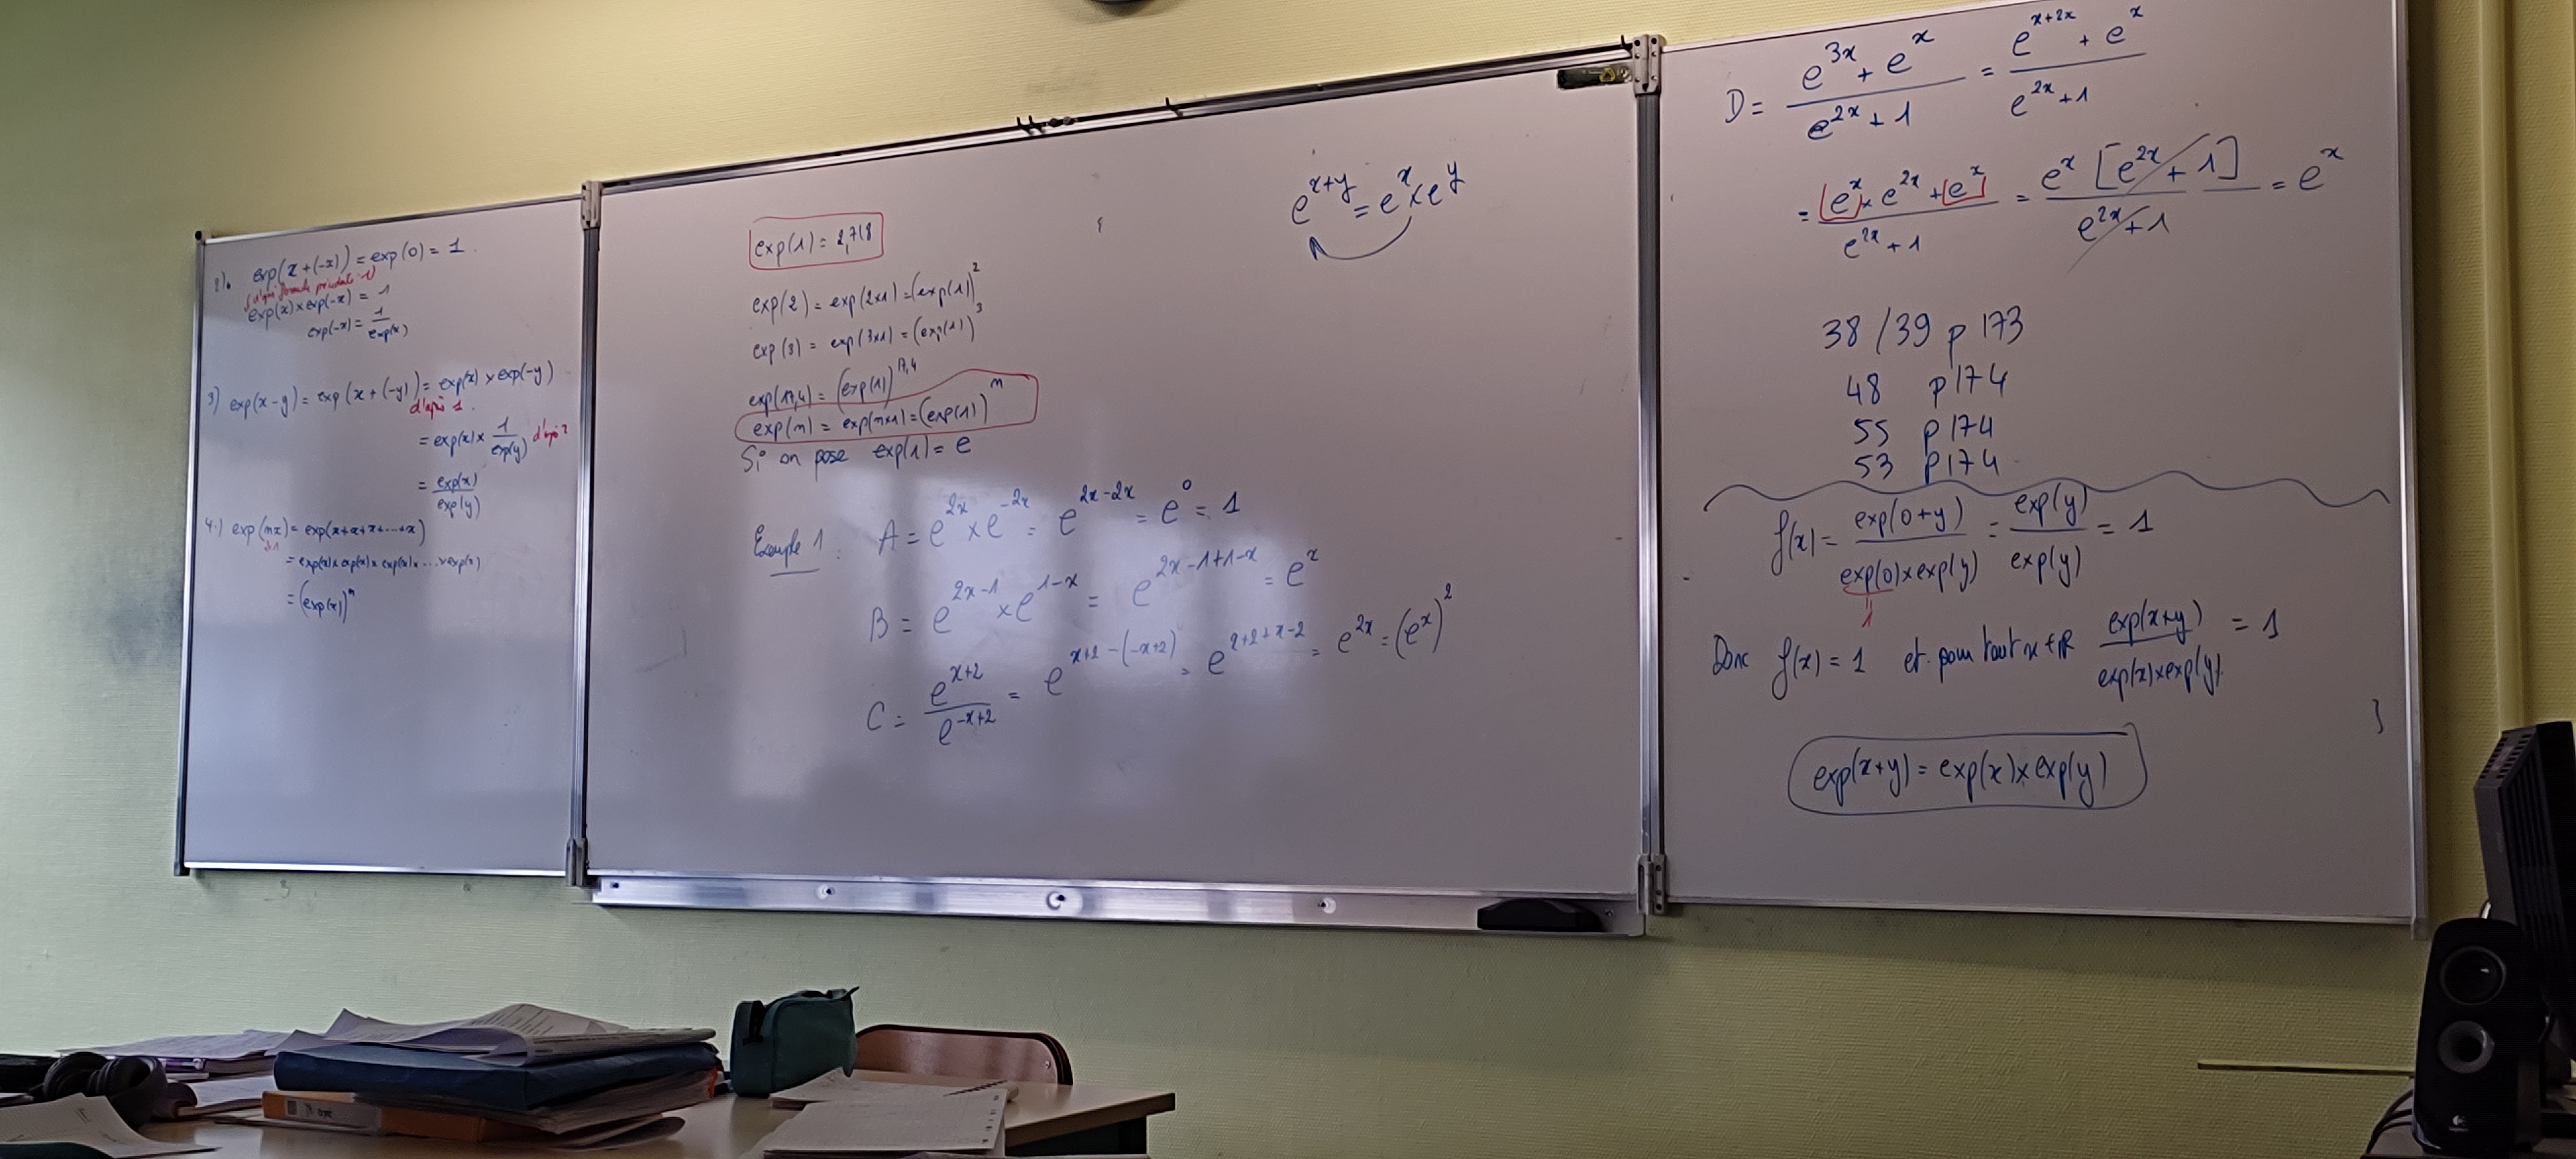 2). exp(x+(-x)) = exp(0) = 1.
exp(x) × exp(-x) = 1
exp(-x) = 1/exp(x)
3) exp(x-y) = exp(x+(-y)) = exp(x) × exp(-y)
d'après 1.
= exp(x) × 1/exp(y) d'après 2
= exp(x)/exp(y)
4.) exp(nx) = exp(x+x+x+....+x)
= exp(x) × exp(x) × exp(x) × .... × exp(x)
= (exp(x))^n
e^(x+y) = e^x × e^y
exp(1) = 2,718
exp(2) = exp(2×1) = (exp(1))^2
exp(3) = exp(3×1) = (exp(1))^3
exp(17,4) = (exp(1))^17,4
exp(n) = exp(n×1) = (exp(1))^n
Si on pose exp(1) = e
Exemple 1 : A = e^(2x) × e^(-2x) = e^(2x-2x) = e^0 = 1
B = e^(2x-1) × e^(1-x) = e^(2x-1+1-x) = e^x
C = e^(x+2)/e^(-x+2) = e^(x+2-(-x+2)) = e^(x+2+x-2) = e^(2x) = (e^x)^2
D = (e^(3x) + e^x)/(e^(2x) + 1) = (e^(x+2x) + e^x)/(e^(2x) + 1)
= (e^x × e^(2x) + e^x)/(e^(2x) + 1) = e^x [e^(2x) + 1]/(e^(2x) + 1) = e^x
38 / 39 p 173
48 p 174
55 p 174
53 p 174
f(x) = exp(0+y)/(exp(0) × exp(y)) = exp(y)/exp(y) = 1
1
Donc f(x) = 1 et pour tout x ∈ ℝ exp(x+y)/(exp(x) × exp(y)) = 1
exp(x+y) = exp(x) × exp(y)